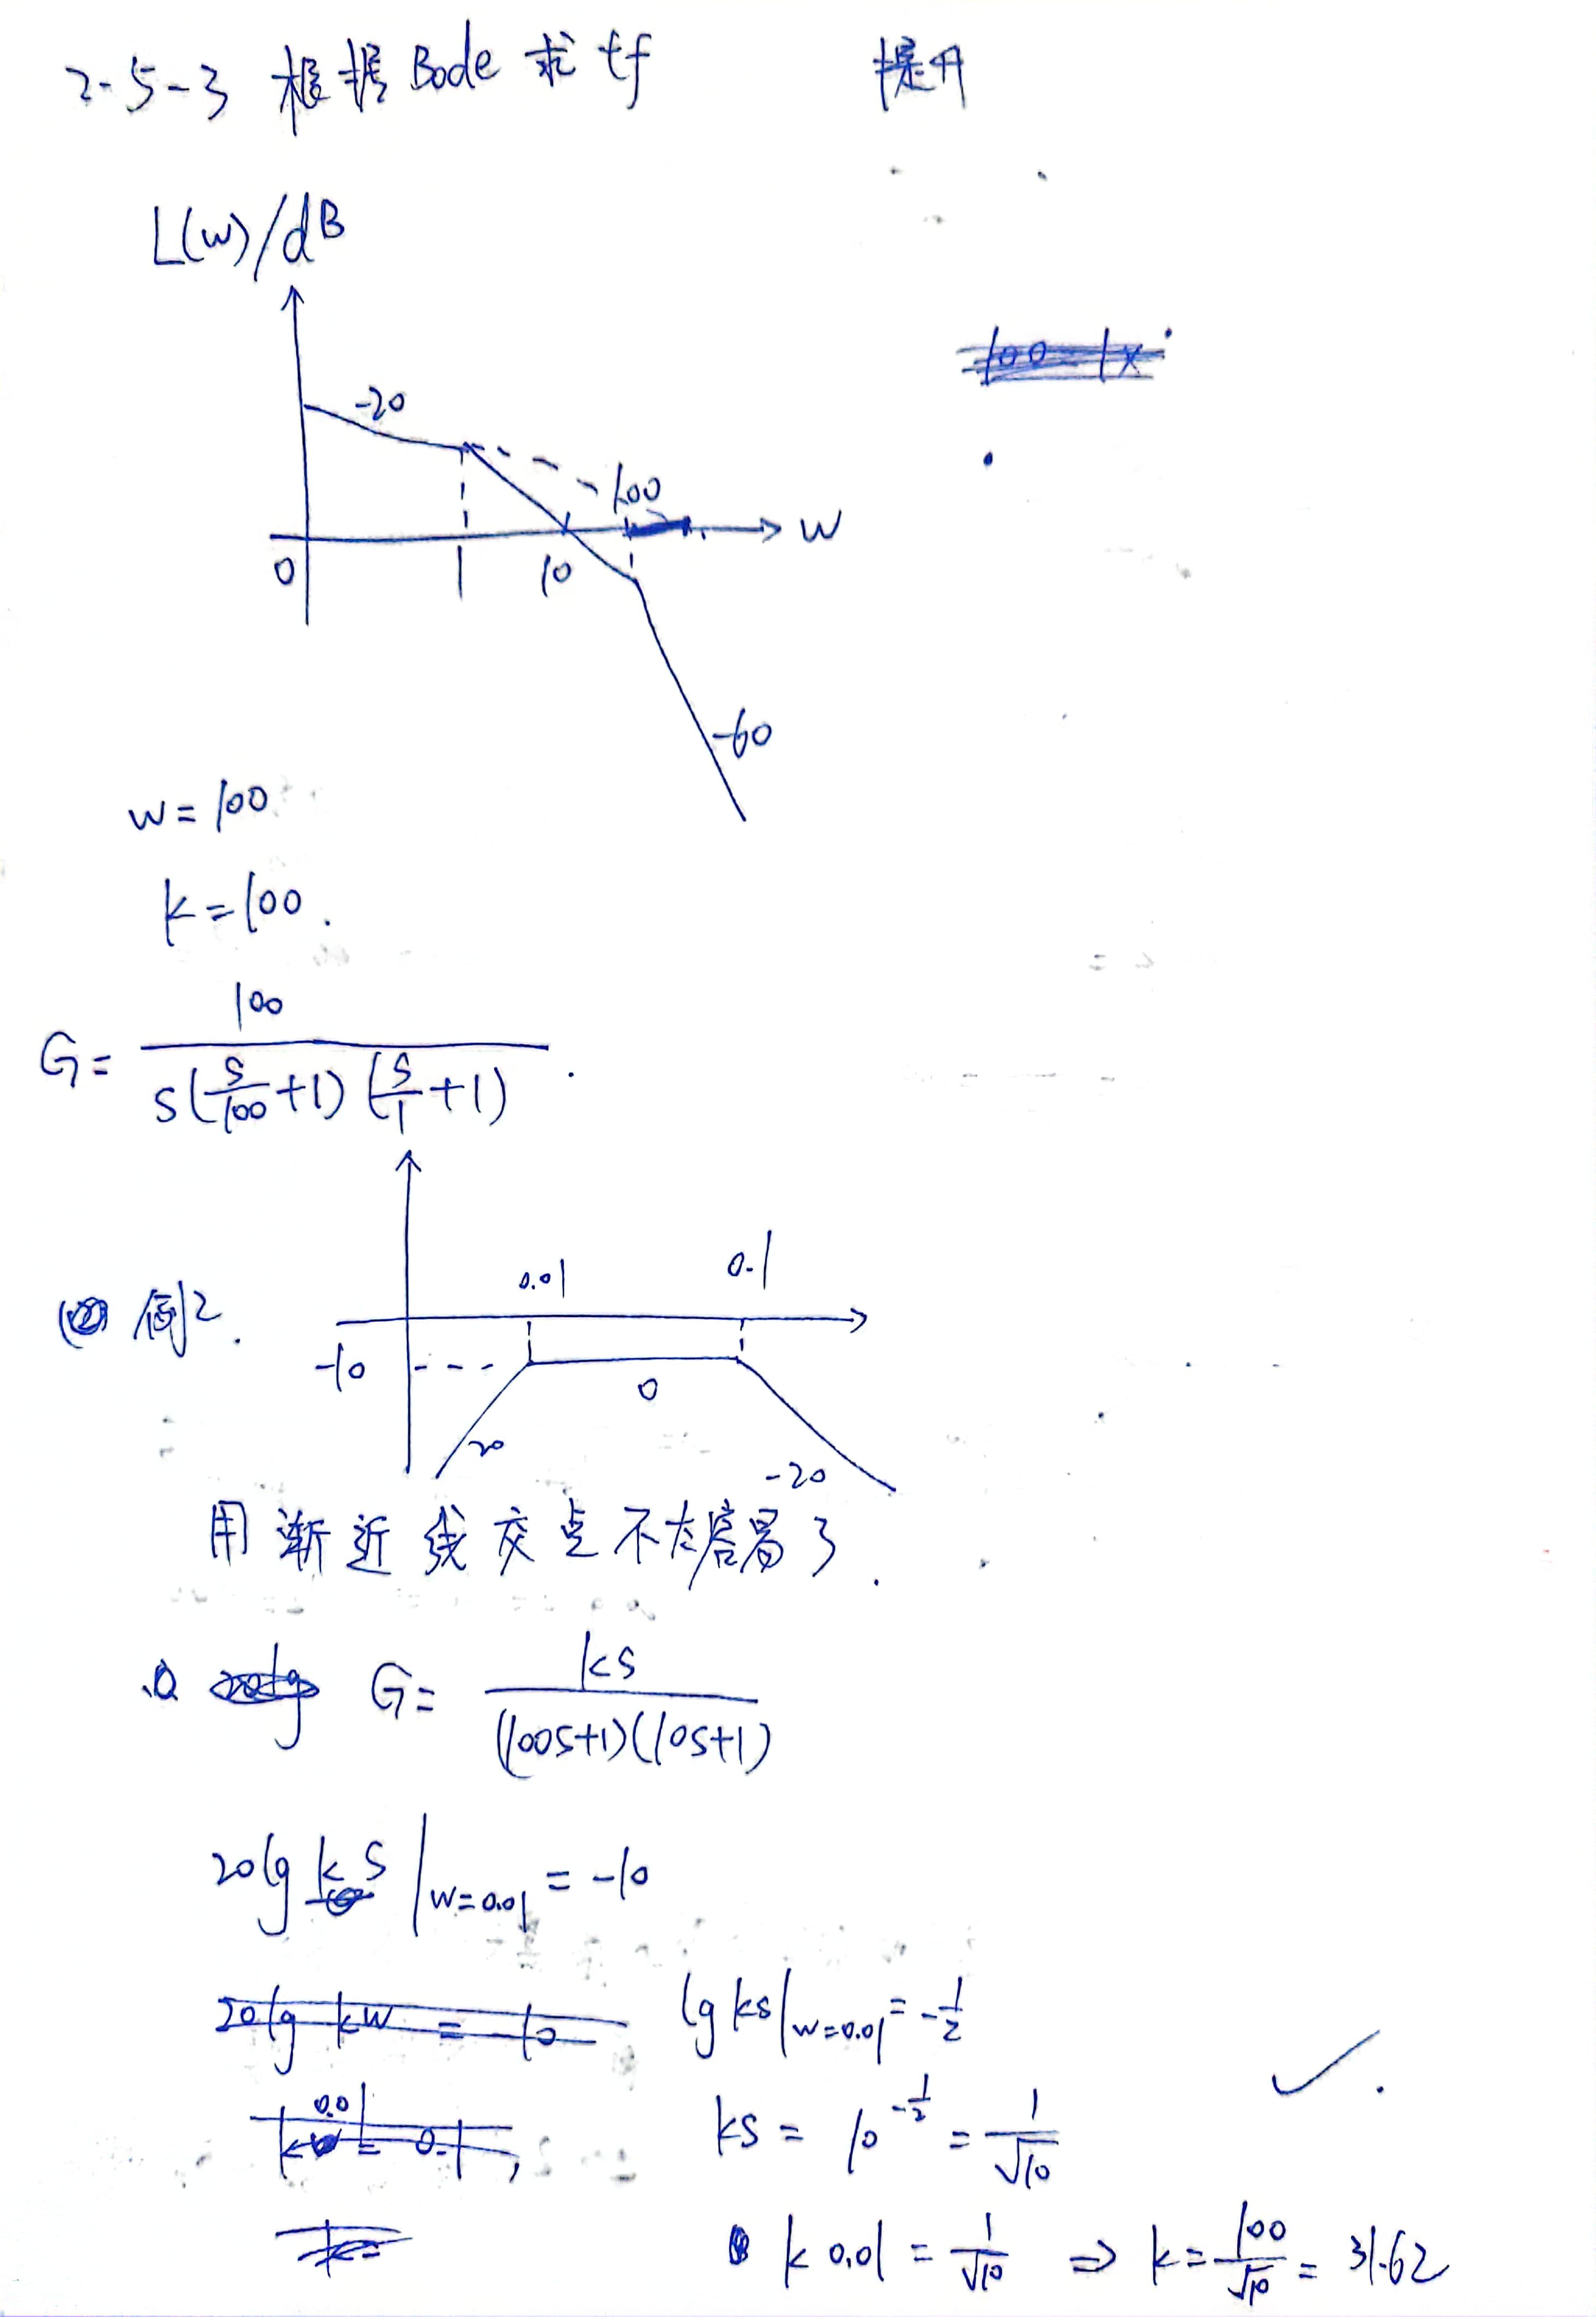 2-5-3 根据Bode求tf 提升
L(w)/dB
-20
100
w
0 1 10
-60
w=100
k=100.
G= 100 / s(s/100+1)(s/1+1).
例2.
0.01 0.1
-10
0
20
-20
用渐近线交点不太容易了.
G= ks / (100s+1)(10s+1)
20lg ks|w=0.01 = -10
20lg kw = -10
lg ks|w=0.01 = -1/2
ks = 10^-1/2 = 1/√10
k 0.01 = 1/√10 ⇒ k = 100/√10 = 31.62